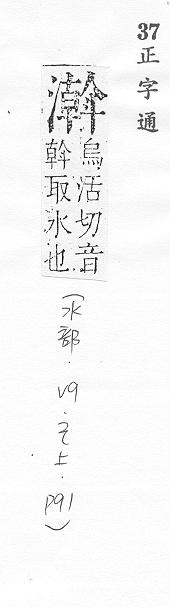 37正字通
烏活切音
斡取水也
(水部.V9.巳上.P91)